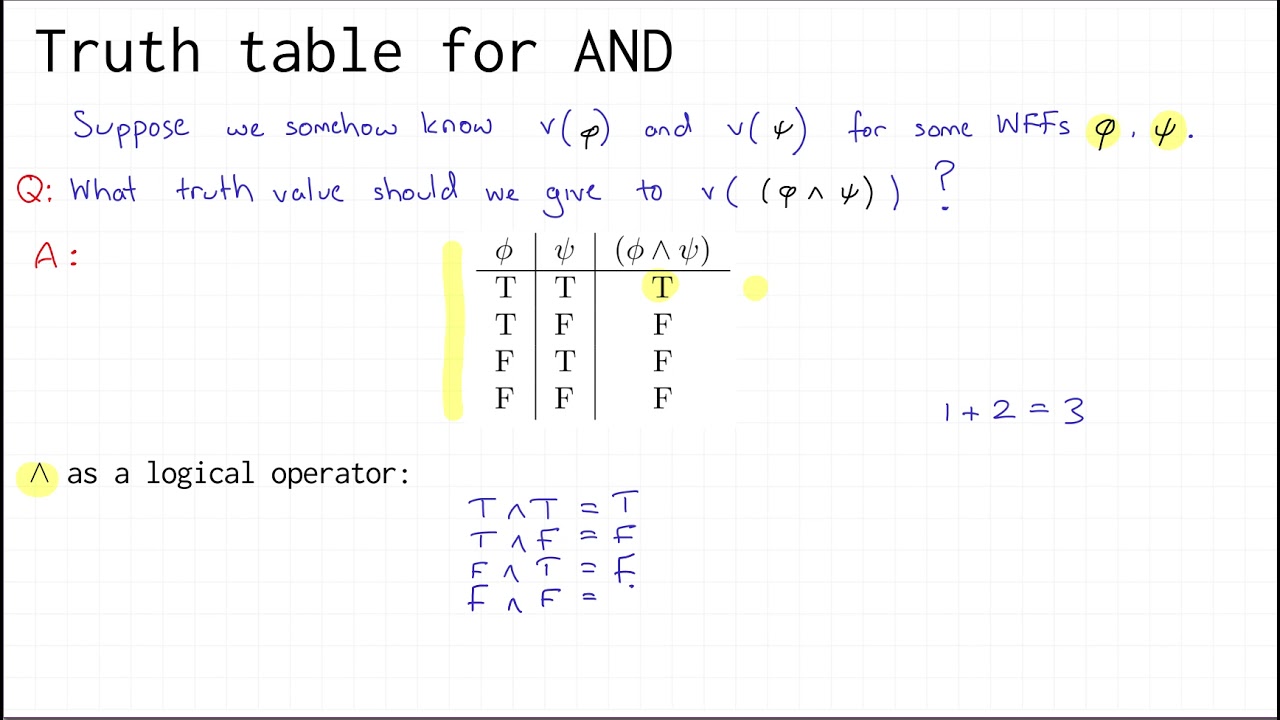 Truth table for AND
Suppose we somehow know v(φ) and v(ψ) for some WFFs φ, ψ.
Q: What truth value should we give to v( (φ ∧ ψ) ) ?
A:
ϕ ψ (ϕ ∧ ψ)
T T T
T F F
F T F
F F F
1 + 2 = 3
∧ as a logical operator:
T ∧ T = T
T ∧ F = F
F ∧ T = F
F ∧ F =